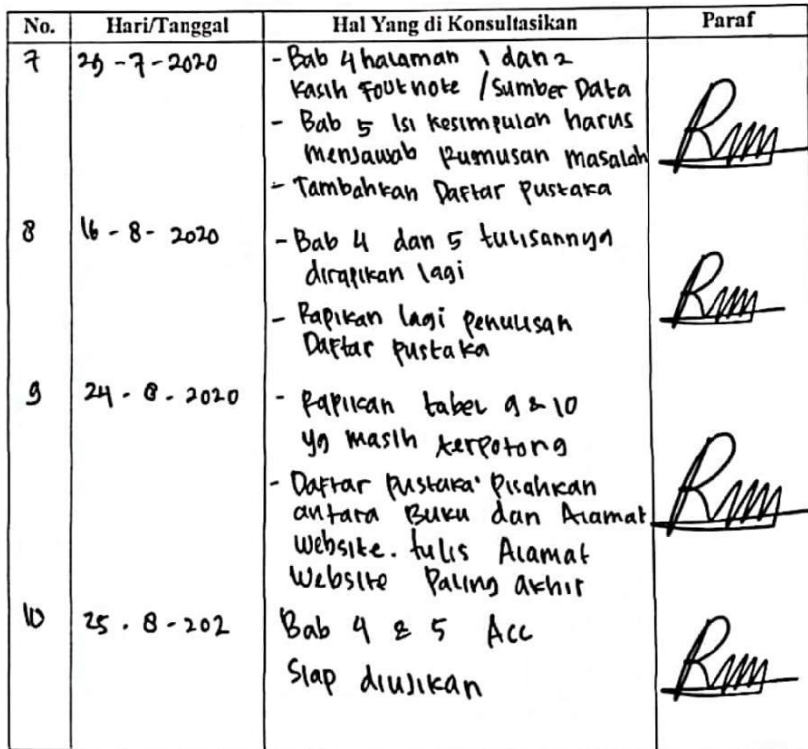 No. Hari/Tanggal Hal Yang di Konsultasikan Paraf
7 29-7-2020 - Bab 4 halaman 1 dan 2
Kasih Footnote / Sumber Data
- Bab 5 Isi kesimpulan harus
menjawab Rumusan masalah
- Tambahkan Daftar Pustaka
8 16-8-2020 - Bab 4 dan 5 tulisannya
dirapikan lagi
- Rapikan lagi penulisan
Daftar Pustaka
9 24-8-2020 - Rapikan tabel 9 & 10
yg masih terpotong
- Daftar Pustaka pisahkan
antara Buku dan Alamat
website. tulis Alamat
Website Paling akhir
10 25.8-202 Bab 4 & 5 Acc
Siap diujikan